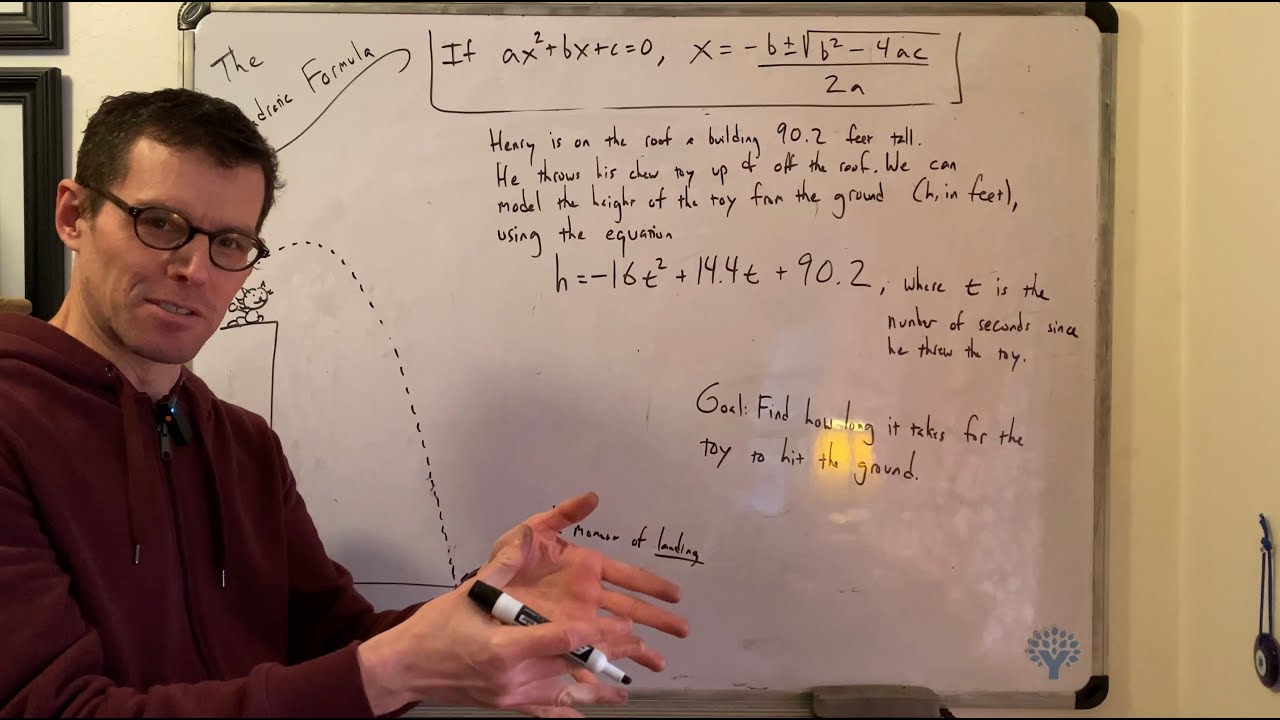 The
Formula
If ax²+bx+c=0, x = -b±√b²-4ac
2a
Henry is on the roof a building 90.2 feet tall.
He throws his chew toy up & off the roof. We can
model the height of the toy from the ground (h, in feet),
using the equation
h=-16t²+14.4t+90.2, where t is the
number of seconds since
he threw the toy.
Goal: Find how long it takes for the
toy to hit the ground.
moment of landing
Y